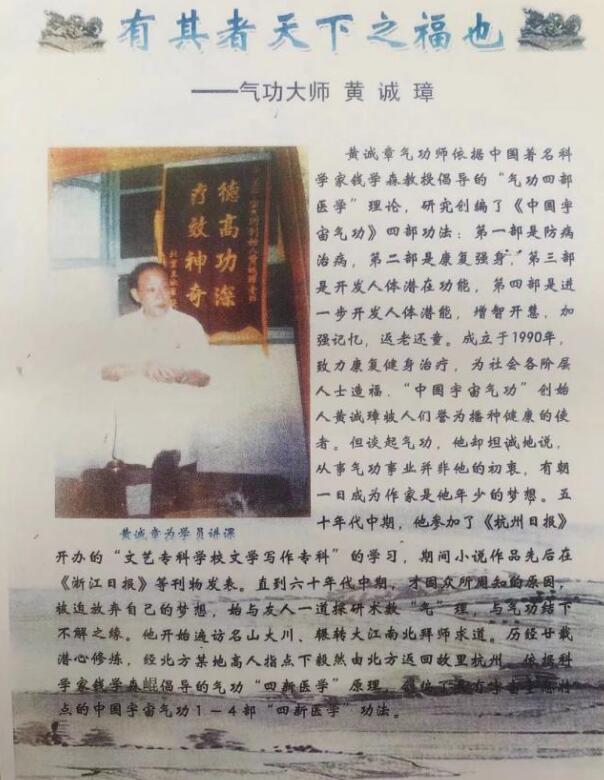 有其者天下之福也
——气功大师 黄诚璋
德高功深
疗效神奇
黄诚章为学员讲课
黄诚章气功师依据中国著名科
学家钱学森教授倡导的“气功四部
医学”理论，研究创编了《中国宇
宙气功》四部功法：第一部是防病
治病，第二部是康复强身，第三部
是开发人体潜在功能，第四部是进
一步开发人体潜能，增智开慧，加
强记忆，返老还童。成立于1990年，
致力康复健身治疗，为社会各阶层
人士造福．“中国宇宙气功”创始
人黄诚璋被人们誉为播种健康的使
者。但谈起气功，他却坦诚地说，
从事气功事业并非他的初衷，有朝
一日成为作家是他年少的梦想。五
十年代中期，他参加了《杭州日报》
开办的“文艺专科学校文学写作专科”的学习，期间小说作品先后在
《浙江日报》等刊物发表。直到六十年代中期，才因众所周知的原因，
被迫放弃自己的梦想，始与友人一道探研术数“气”理，与气功结下
不解之缘。他开始遍访名山大川、辗转大江南北拜师求道。历经廿载
潜心修炼，经北方某地高人指点下毅然由北方返回故里杭州，依据科
学家钱学森倡导的气功“四新医学”原理，
点的中国宇宙气功1－4部“四新医学”功法。